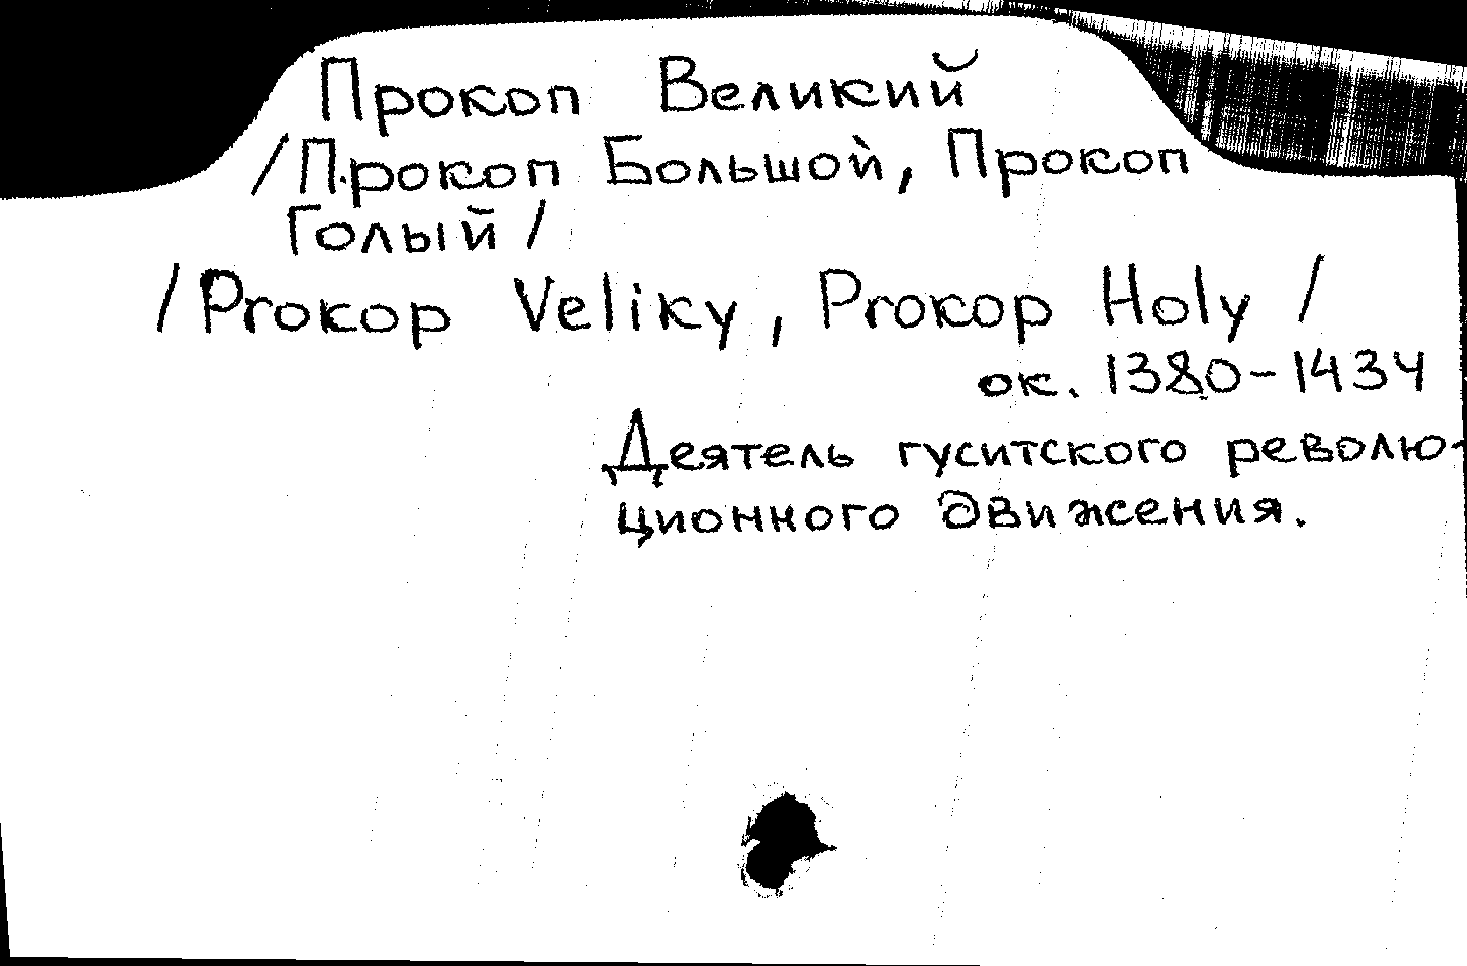 Прокоп Великий
/Прокоп Большой, Прокоп
Голый/
/Prokop Veliky, Prokop Holy/
ок. 1380-1434
Деятель гуситского револю-
ционного движения.